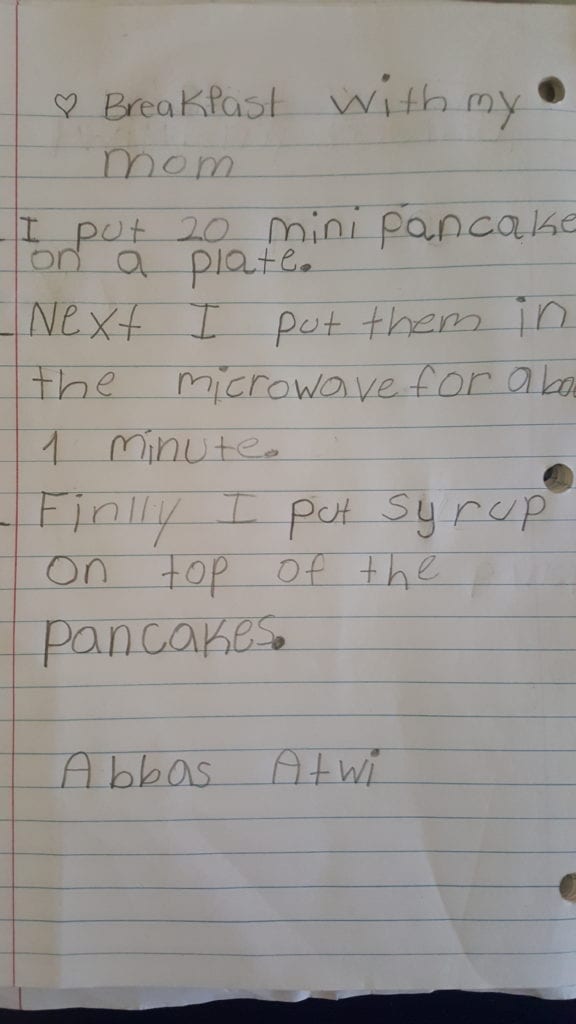 ♡ Breakfast with my
mom
- I put 20 mini pancake
on a plate.
- Next I put them in
the microwave for abo
1 minute.
- Finlly I put syrup
on top of the
pancakes.
Abbas Atwi